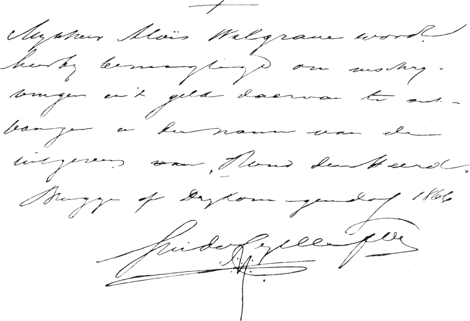 Mynheer Aloïs Walgrave word
hierby bemagtigd om inschry-
vingen en 't geld daervan te ont-
vangen in den naam van de
uitgevers van, Rond den Heerd.
Brugge op Drykoningendag 1866
Guido Gezelle